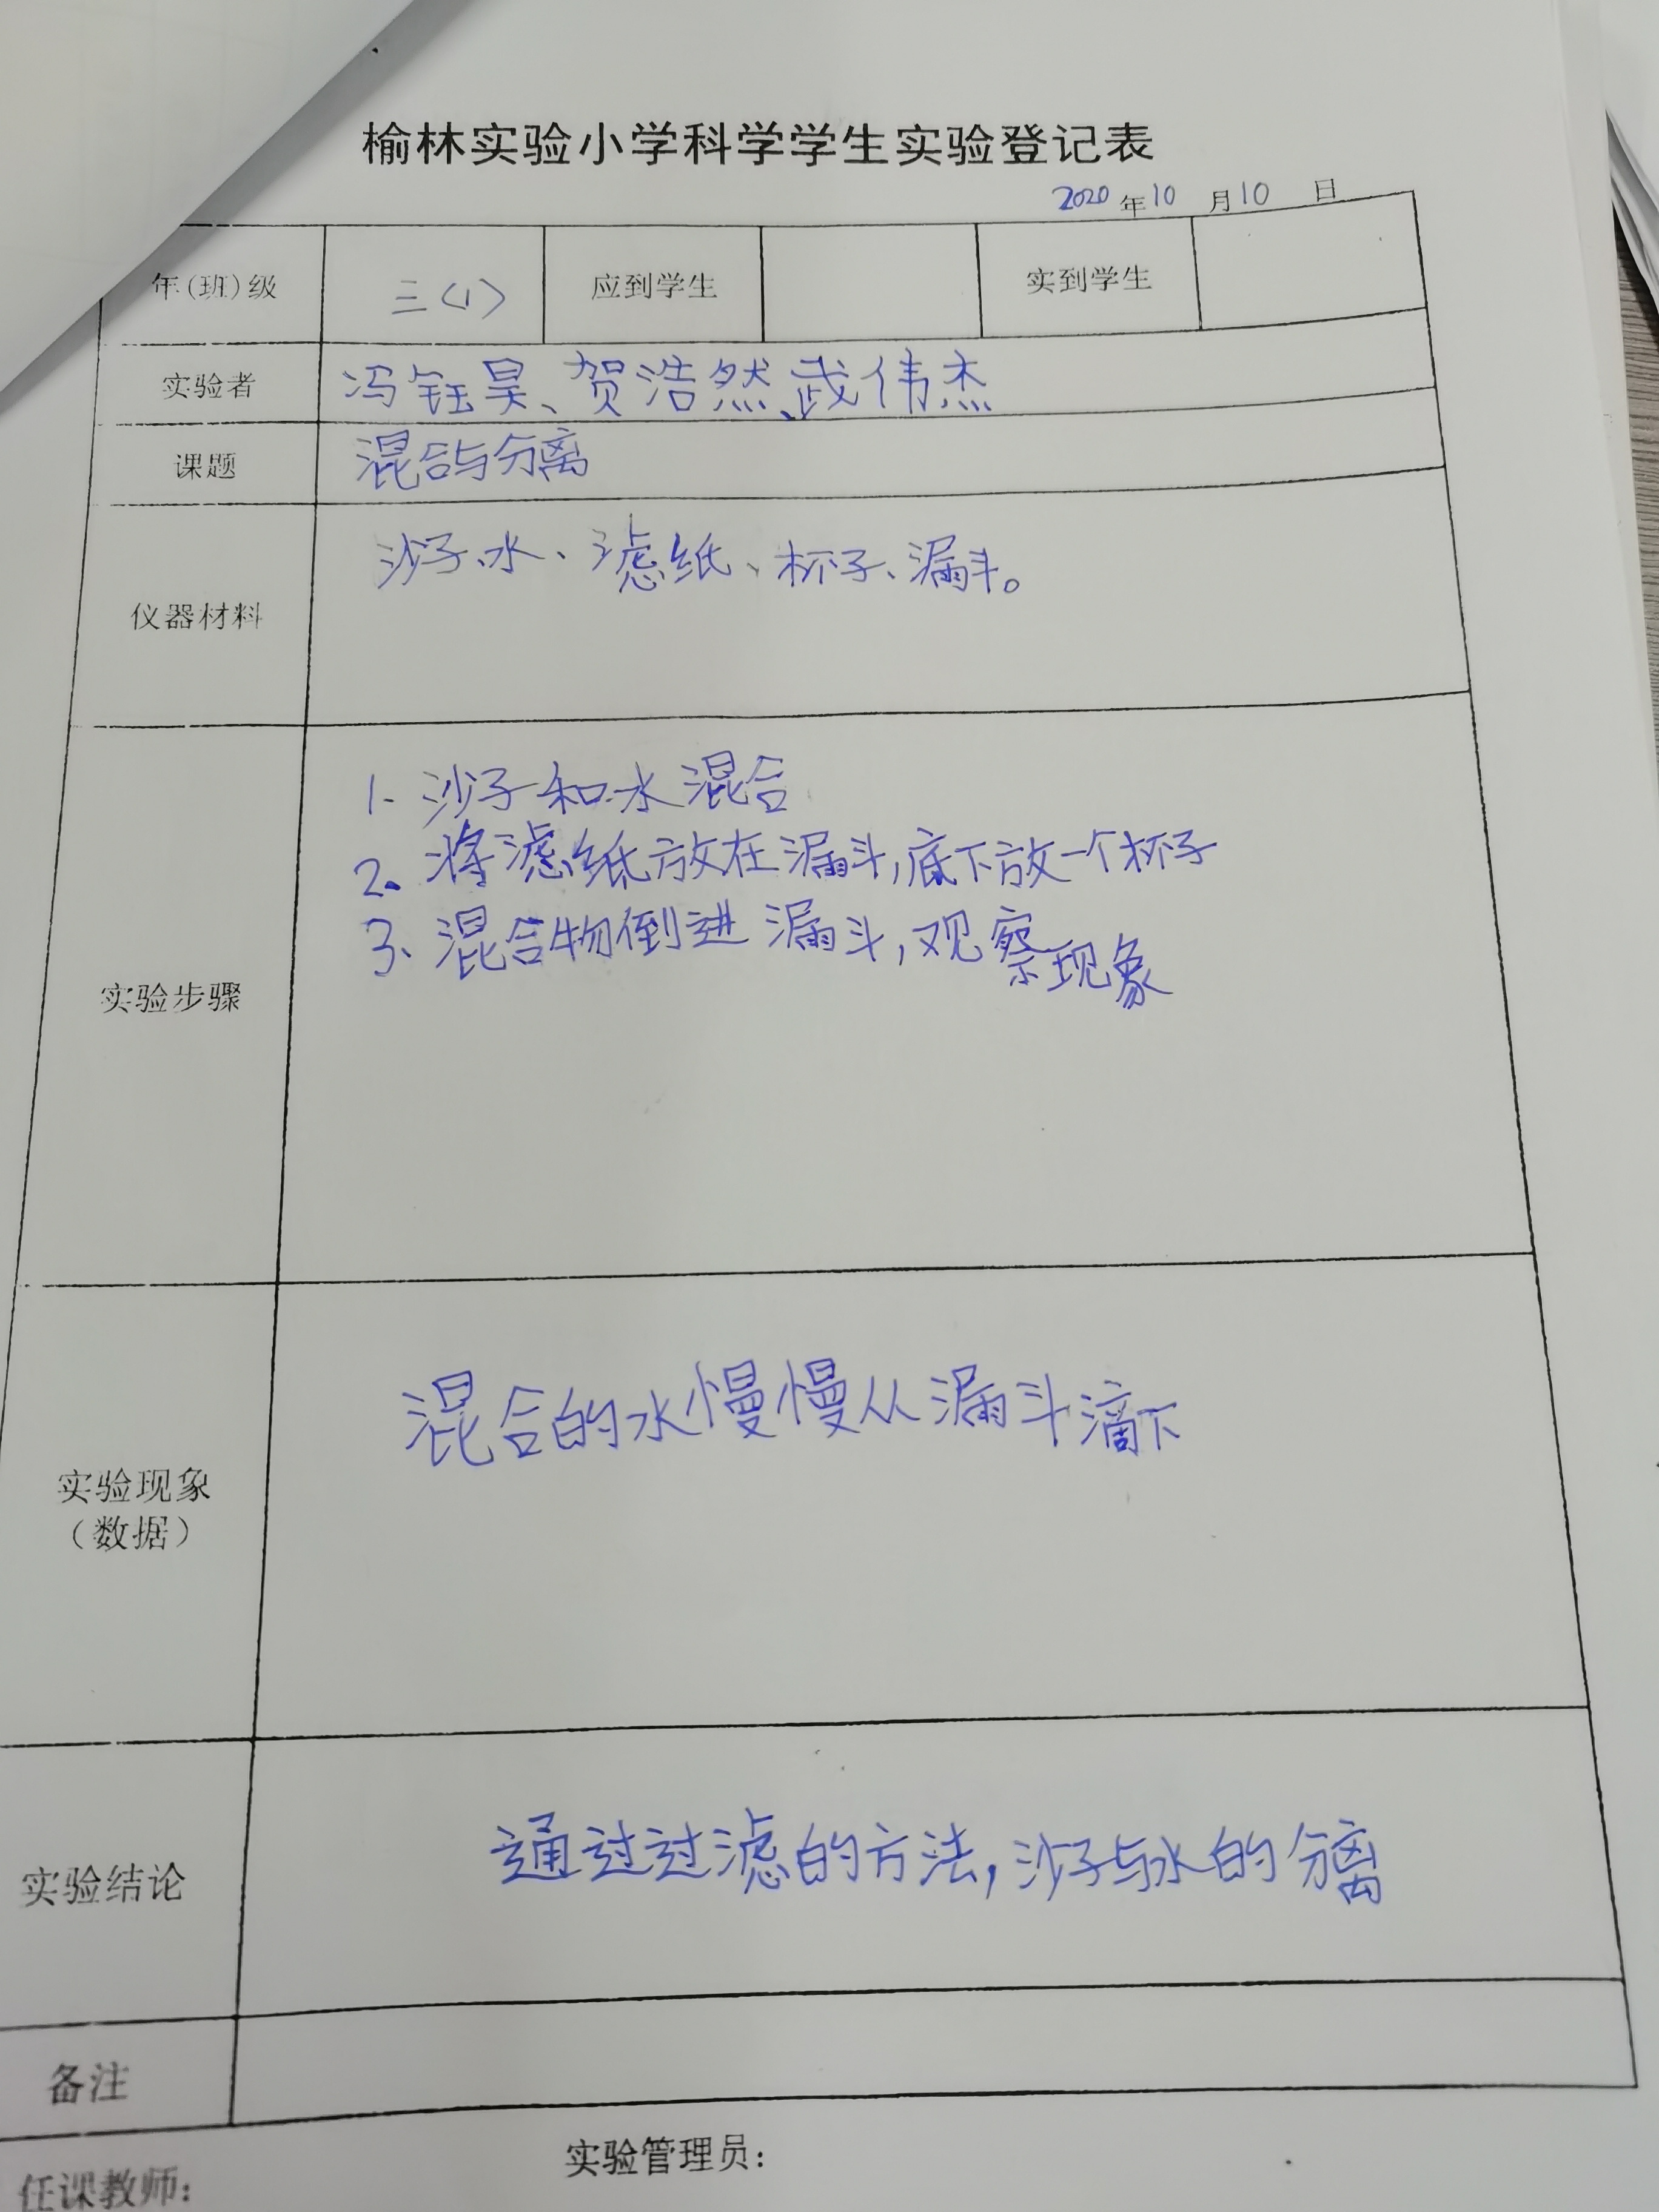 榆林实验小学科学学生实验登记表
2020 年 10 月 10 日
年(班)级 三(1) 应到学生 实到学生
实验者 冯钰昊、贺浩然、武伟杰
课题 混合与分离
仪器材料 沙子、水、滤纸、杯子、漏斗。
实验步骤
1. 沙子和水混合
2. 将滤纸放在漏斗,底下放一个杯子
3、混合物倒进漏斗,观察现象
实验现象
（数据）
混合的水慢慢从漏斗滴下
实验结论 通过过滤的方法,沙子与水的分离
备注
任课教师: 实验管理员: